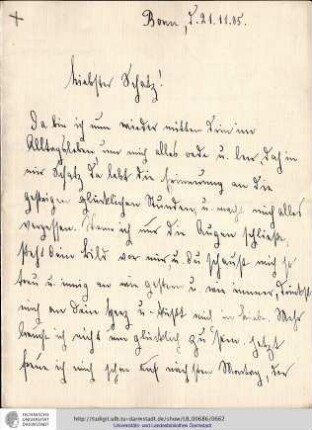 Bonn, d. 21.11.05.
Liebster Schatz!
Da bin ich nun wieder mitten drin im
Alltagsleben um mich alles oede u. leer, doch in
mir Schatz da lebt die Erinnerung an die
gestrigen glücklichen Stunden, u. macht mich alles
vergessen. Wenn ich nur die Augen schließe,
steht Dein Bild vor mir u. Du schaust mich so
treu u. innig an wie gestern u. wie immer, drückst
mich an Dein Herz u. küßt mich in Liebe. Mehr
brauche ich nicht um glücklich zu sein. Jetzt
freue ich mich schon auf nächsten Montag, der
http://tudigit.ulb.tu-darmstadt.de/show/ULB0686/0662
Universitäts- und Landesbibliothek Darmstadt